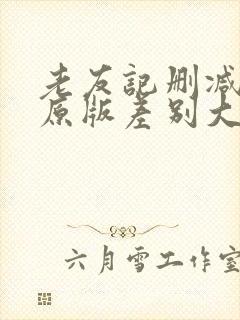 老友記刪減
原版差别大
六月雪工作室